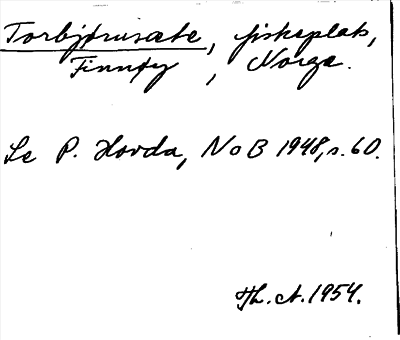 Torbjørnsæte, fiskeplats,
Finnøy, Norge.
Se P. Hovda, NoB 1948, s. 60.
Th. A. 1954.